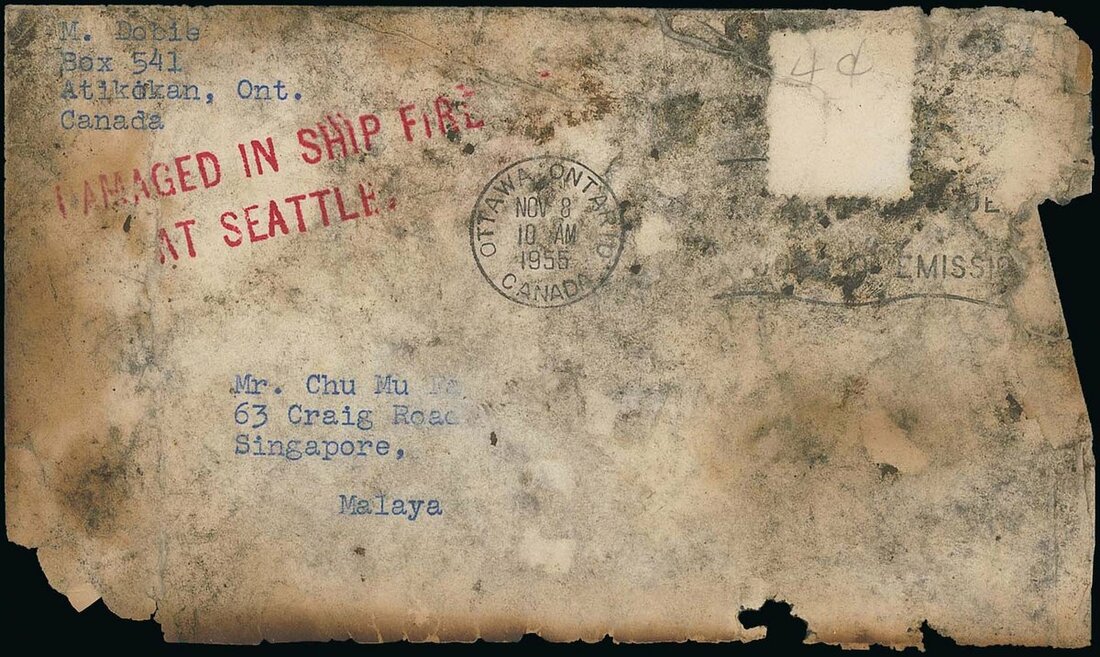 M. Dobie
Box 541
Atikokan, Ont.
Canada
DAMAGED IN SHIP FIRE
AT SEATTLE.
4¢
OTTAWA, ONTARIO
NOV 8
10 AM
1955
CANADA
Mr. Chu Mu
63 Craig Road
Singapore,
Malaya